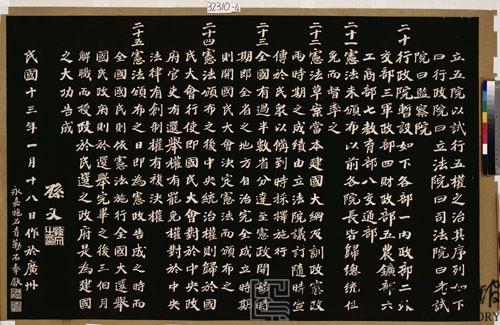 32310-4
立五院以試行五權之治其序列如下
曰行政院曰立法院曰司法院曰考試
院曰監察院
二十行政院暫設如下各部一內政部二外
交部三軍政部四財政部五農鑛部六
工商部七教育部八交通部
二十一憲法未頒布以前各院長皆歸總統任
免而督率之
二十二憲法草案當本建國大綱及訓政憲政
兩時期之成績由立法院議訂隨時宣
傳於民眾以備到時採擇施行
二十三全國有過半數省分達至憲政開始時
期即全省之地方自治完全成立時期
則開國民大會決定憲法而頒布之
二十四憲法頒布之後中央統治權則歸於國
民大會行使即國民大會對於中央政
府官吏有選舉權有罷免權對於中央
法律有創制權有複決權
二十五憲法頒布之日即為憲政告成之時而
全國國民則依憲法施行全國大選舉
國民政府則於選舉完畢之後三個月
解職而授政於民選之政府是為建國
之大功告成
孫文
民國十三年一月十八日作於廣州
永嘉施石青勒石奉獻
ORY